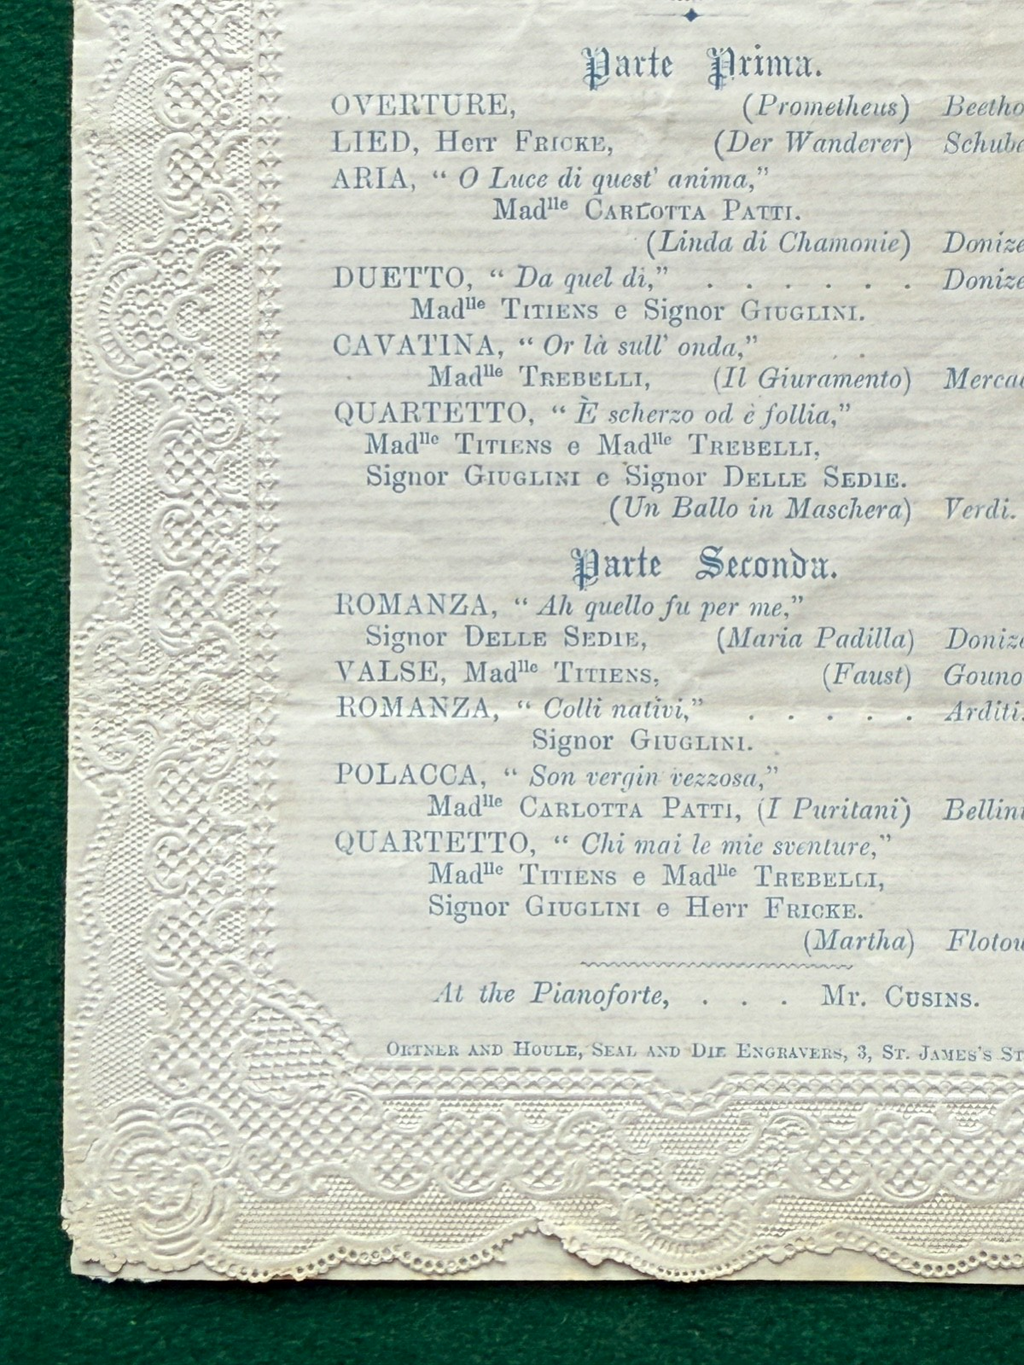 Parte Prima.
OVERTURE, (Prometheus) Beetho
LIED, Herr FRICKE, (Der Wanderer) Schube
ARIA, “ O Luce di quest' anima,”
Madlle CARLOTTA PATTI.
(Linda di Chamonie) Donize
DUETTO, “ Da quel di,” . . . . . . Donize
Madlle TITIENS e Signor GIUGLINI.
CAVATINA, “ Or là sull' onda,”
Madlle TREBELLI, (Il Giuramento) Merca
QUARTETTO, “ È scherzo od è follia,”
Madlle TITIENS e Madlle TREBELLI,
Signor GIUGLINI e Signor DELLE SEDIE.
(Un Ballo in Maschera) Verdi.
Parte Seconda.
ROMANZA, “ Ah quello fu per me,”
Signor DELLE SEDIE, (Maria Padilla) Donize
VALSE, Madlle TITIENS, (Faust) Gouno
ROMANZA, “ Colli nativi,” . . . . . Arditi.
Signor GIUGLINI.
POLACCA, “ Son vergin vezzosa,”
Madlle CARLOTTA PATTI, (I Puritani) Bellini
QUARTETTO, “ Chi mai le mie sventure,”
Madlle TITIENS e Madlle TREBELLI,
Signor GIUGLINI e Herr FRICKE.
(Martha) Flotow
At the Pianoforte, . . . Mr. CUSINS.
ORTNER AND HOULE, SEAL AND DIE ENGRAVERS, 3, ST. JAMES'S ST